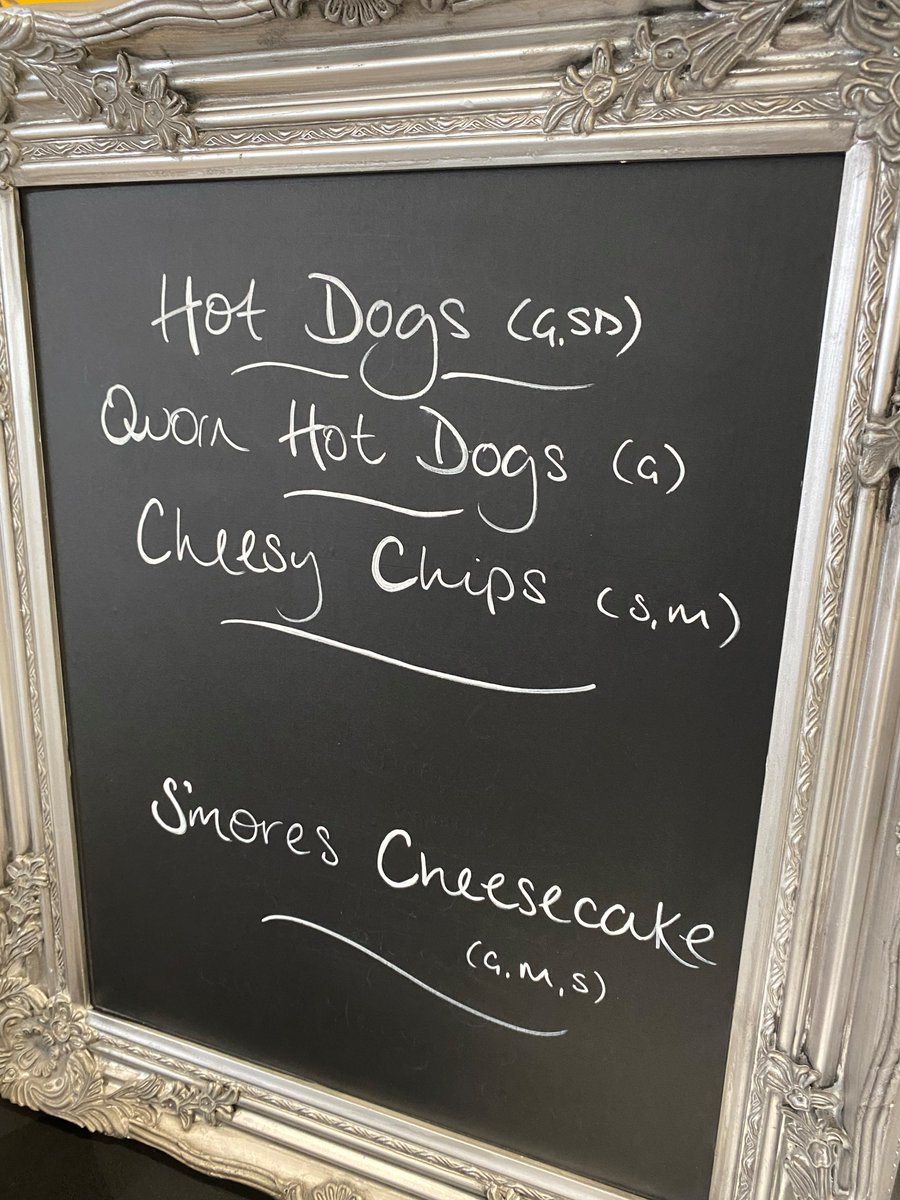 Hot Dogs (G,SD)
Quorn Hot Dogs (G)
Cheesy Chips (S,M)
S'mores Cheesecake
(G,M,S)